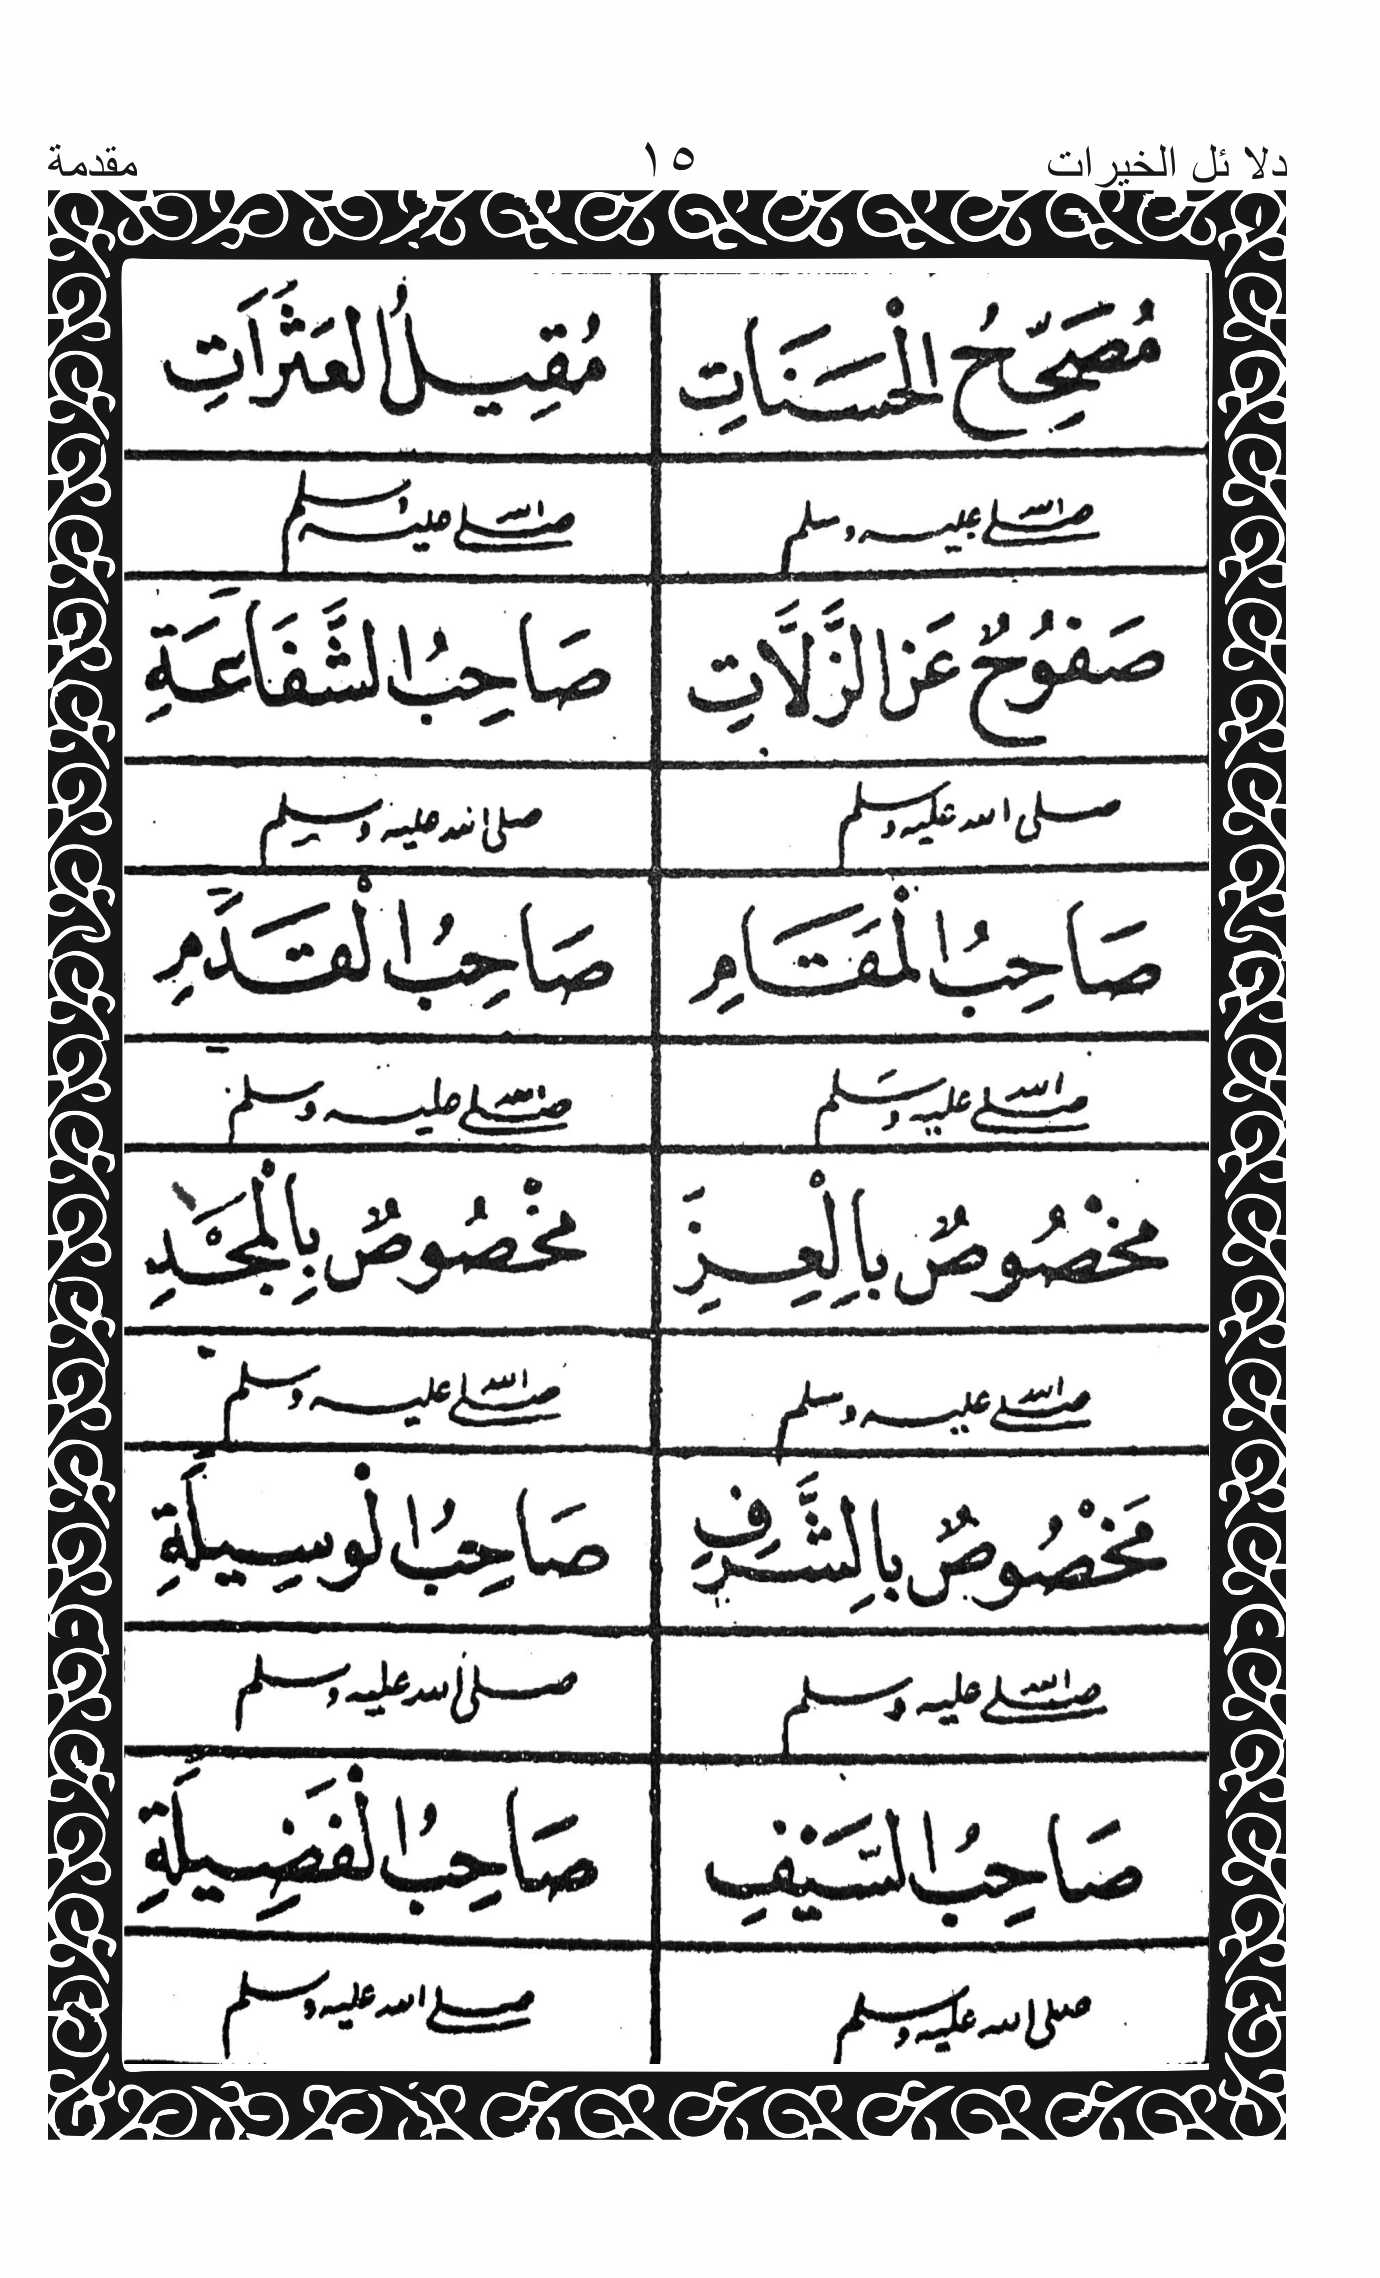 دلا ئل الخيرات ١٥ مقدمة
مُصَحِّحُ الْحَسَنَاتِ مُقِيلُ العَثَرَاتِ
صلى الله عليه وسلم صلى الله عليه وسلم
صَفُوحٌ عَنِ الزَّلَّاتِ صَاحِبُ الشَّفَاعَةِ
صلى الله عليه وسلم صلى الله عليه وسلم
صَاحِبُ الْمَقَامِ صَاحِبُ الْقَدَمِ
صلى الله عليه وسَلم صلى الله عليه وسلم
مخْصُوصٌ بِالْعِزِّ مخْصُوصٌ بِالْمَجْدِ
صلى الله عليه وسلم صلى الله عليه وسلم
مَخْصُوصٌ بِالشَّرَفِ صَاحِبُ الْوَسِيلَةِ
صلى الله عليه وسلم صلى الله عليه وسلم
صَاحِبُ السَّيْفِ صَاحِبُ الْفَضِيلَةِ
صلى الله عليه وسلم صلى الله عليه وسلم